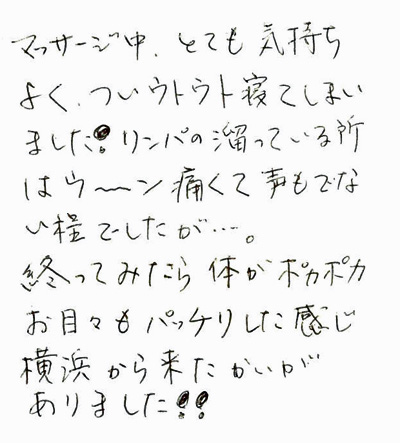 マッサージ中、とても気持ち
よく、ついウトウト寝てしまい
ました!リンパの溜っている所
はウ〜〜ン痛くて声もでな
い程でしたが…。
終ってみたら体がポカポカ
お目々もパッチリした感じ
横浜から来たかいが
ありました!!